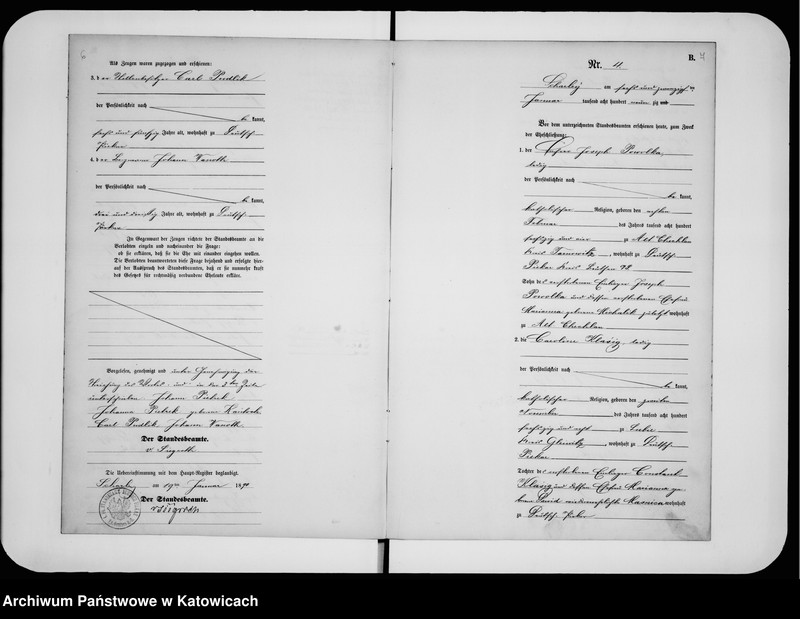 6
Als Zeugen waren zugezogen und erschienen:
3. der Häuslerbesitzer Carl Pudlik
der Persönlichkeit nach
be kannt,
sechs und fünfzig Jahre alt, wohnhaft zu Deutsch-
Piekar
4. der Johann
der Persönlichkeit nach
be kannt,
drei und dreißig Jahre alt, wohnhaft zu Deutsch-
Piekar
In Gegenwart der Zeugen richtete der Standesbeamte an die
Verlobten einzeln und nacheinander die Frage:
ob sie erklären, daß sie die Ehe mit einander eingehen wollen.
Die Verlobten beantworteten diese Frage bejahend und erfolgte hier-
auf der Ausspruch des Standesbeamten, daß er sie nunmehr kraft
des Gesetzes für rechtmäßig verbundene Eheleute erkläre.
Vorgelesen, genehmigt und unter
und in der 3ten Zeile
unterschrieben Johann Pietrek
Johanna Pietrek geborene
Carl Pudlik Johann
Der Standesbeamte.
Die Uebereinstimmung mit dem Haupt-Register beglaubigt.
Scharley am 19ten Januar 18
Der Standesbeamte.
B. 7
Nr. 4.
Scharley am sechs und zwanzigsten
Januar tausend acht hundert neun zig und
Vor dem unterzeichneten Standesbeamten erschienen heute, zum Zweck
der Eheschließung:
1. der Joseph Powolka,
ledig
der Persönlichkeit nach
be kannt,
katholischer Religion, geboren den
Februar des Jahres tausend acht hundert
sechszig und vier zu Alt Chechlau
Kreis Tarnowitz, wohnhaft zu Deutsch-
Piekar Kreis Beuthen
Sohn des verstorbenen Einlieger Joseph
Powolka und dessen verstorbenen Ehefrau
Marianna geborene Michalik zuletzt wohnhaft
zu Alt Chechlau
2. die Caroline Klasig, ledig
der Persönlichkeit nach
be kannt,
katholischer Religion, geboren den zweiten
November des Jahres tausend acht hundert
sechszig und acht zu
Kreis Gleiwitz, wohnhaft zu Deutsch-
Piekar
Tochter des verstorbenen Einlieger Constant
Klasig und dessen Ehefrau Marianna ge-
borene wiederverehelichte wohnhaft
zu Deutsch-Piekar
Archiwum Państwowe w Katowicach